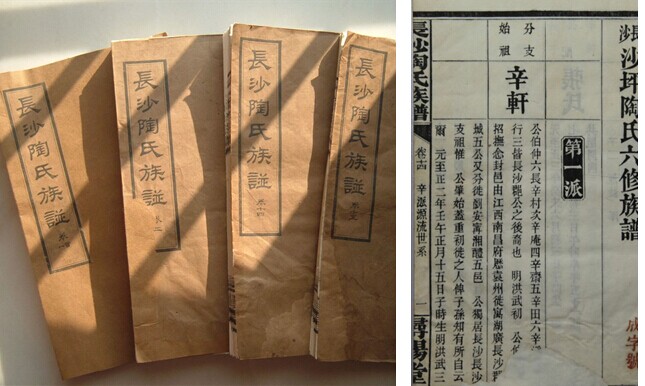 長沙陶氏族譜
長沙陶氏族譜
卷二
長沙陶氏族譜
卷十四
長沙陶氏族譜
長沙坪陶氏六修族譜
成字號
第一派
分支
始祖
辛軒
公伯仲六長辛村次辛庵四辛齋五辛田六辛
行三皆長沙郡公之後裔也 明洪武初 公伯
招撫念封邑由江西南昌府歷袁州徙寓湖廣長沙
城五公又分徙瀏安甯湘醴五邑 公獨居長沙長沙
支祖惟 公肇始蓋重初徙之人俾子孫知有所自云
爾 元至正二年壬午正月十五日子時生明洪武三
長沙陶氏族譜
卷十四
辛派源流世系
一
潯陽堂